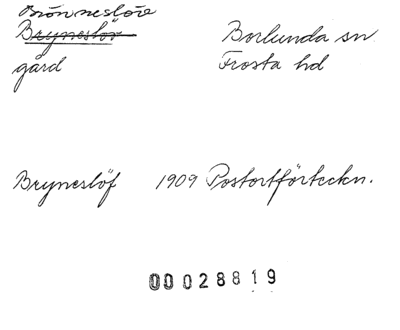 Brönneslöv
Bryneslöv Borlunda sn
gård Frosta hd
Bryneslöf 1909 Postortförteckn.
00028819